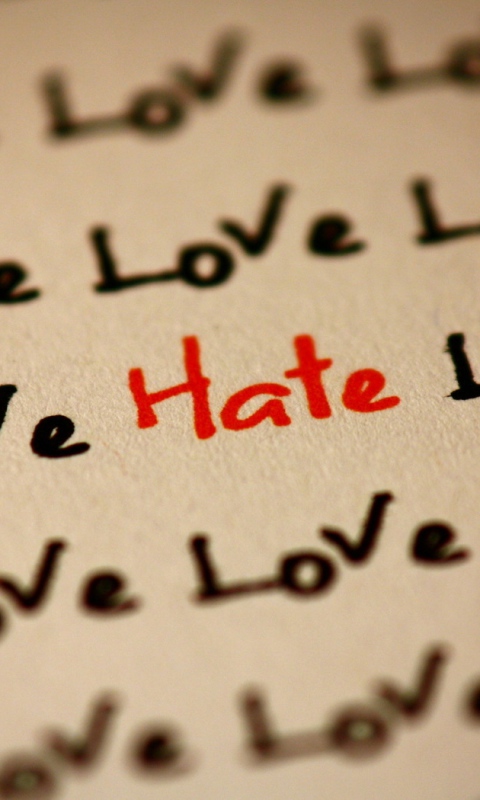 Love Lo
e Love L
ve Hate L
ove Love
ove Love